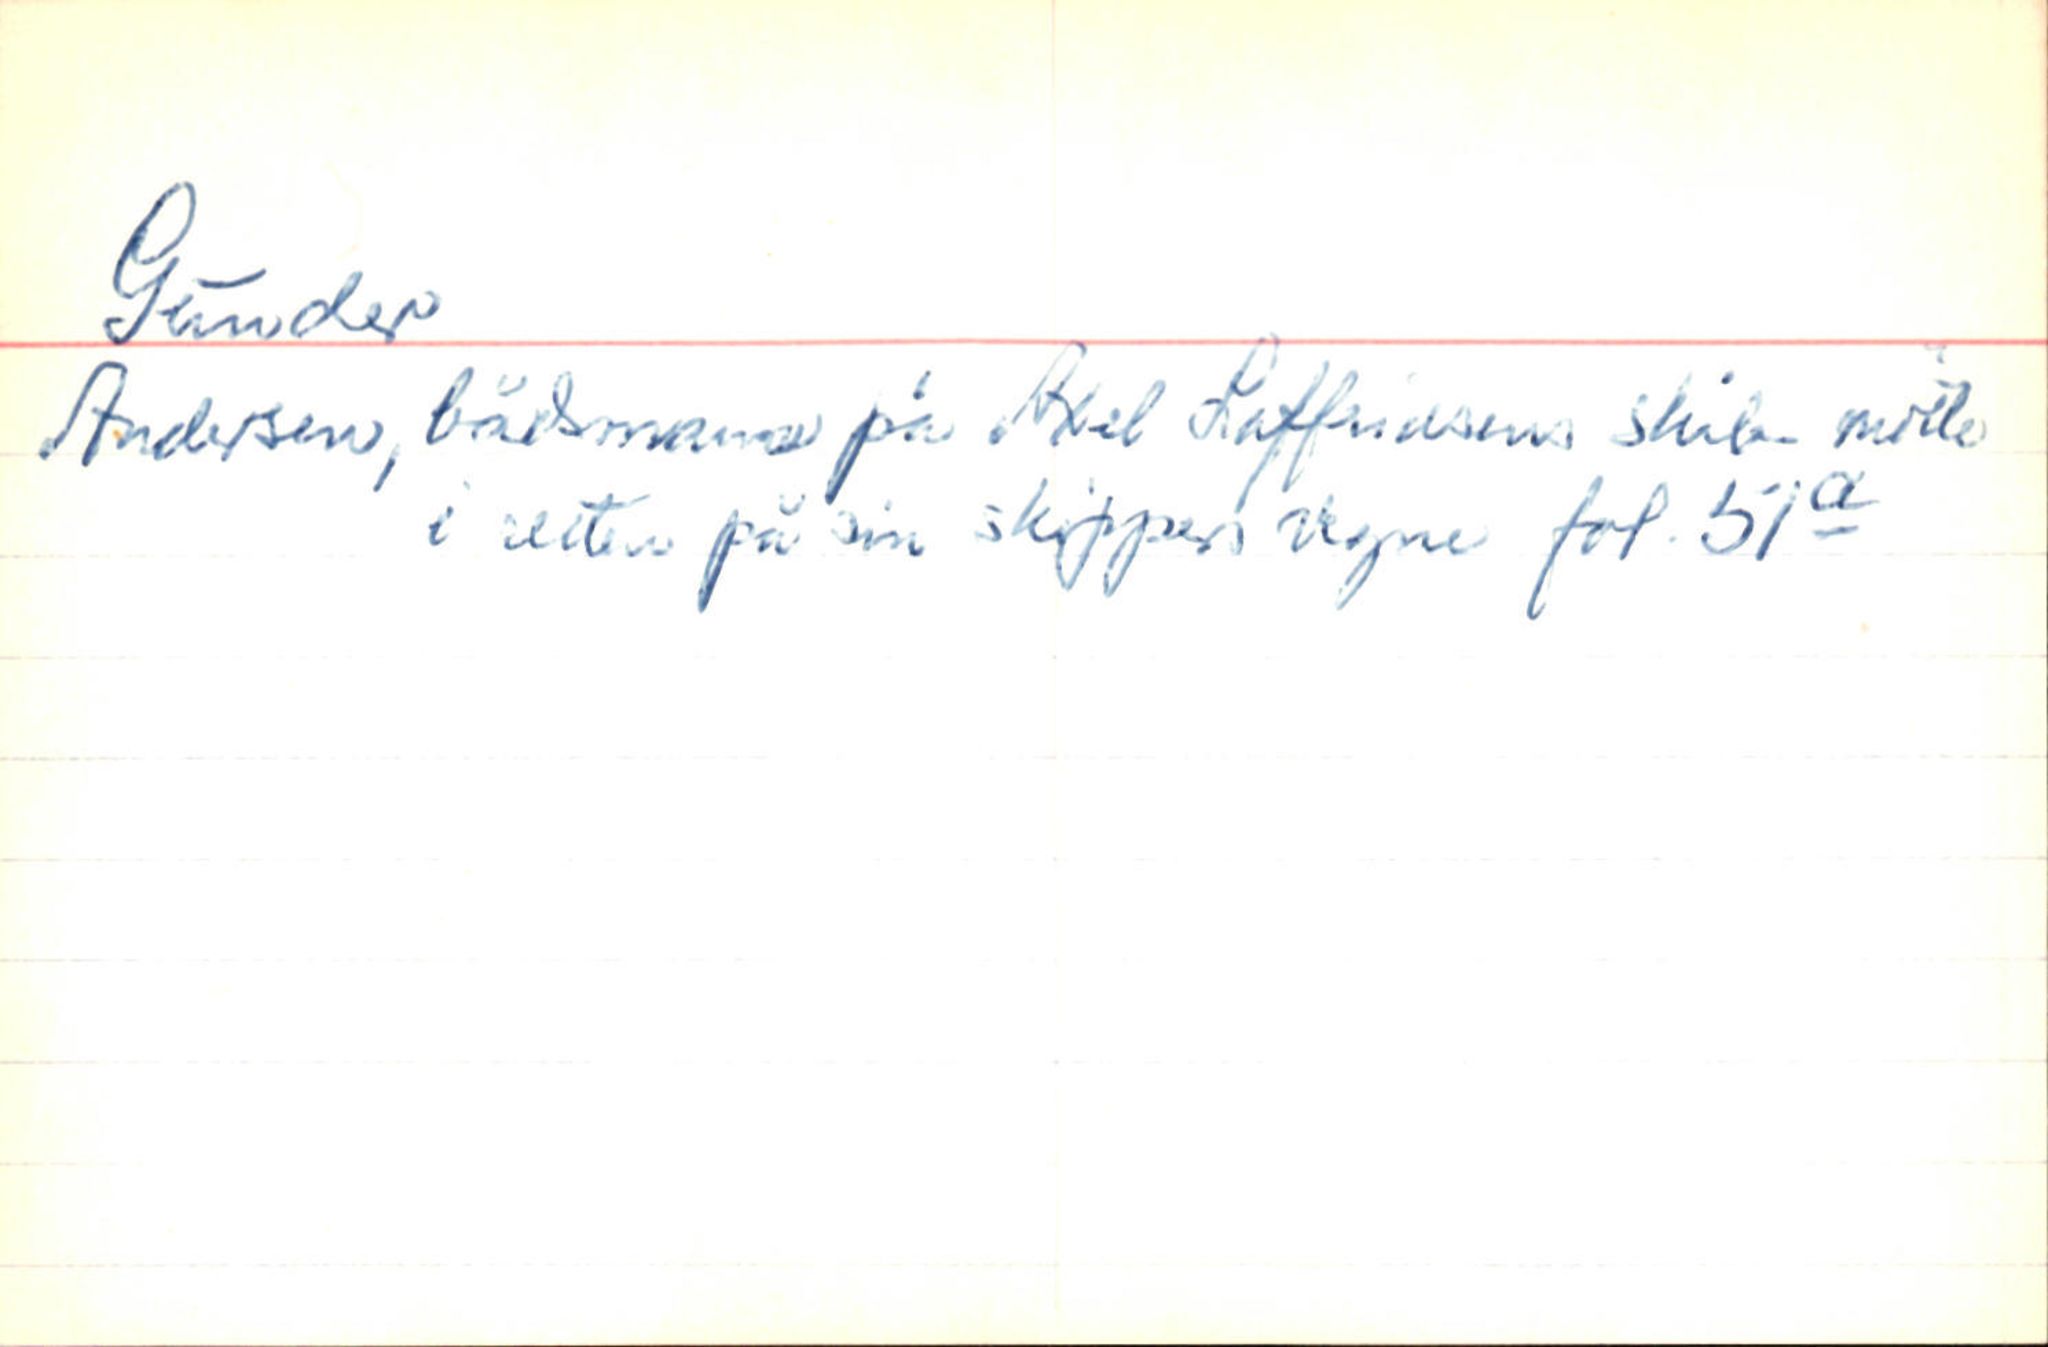 Gunder
Andersen, båtsmann på Axel Laffridsens skib møtte
i retten på sin skippers vegne fol. 51a